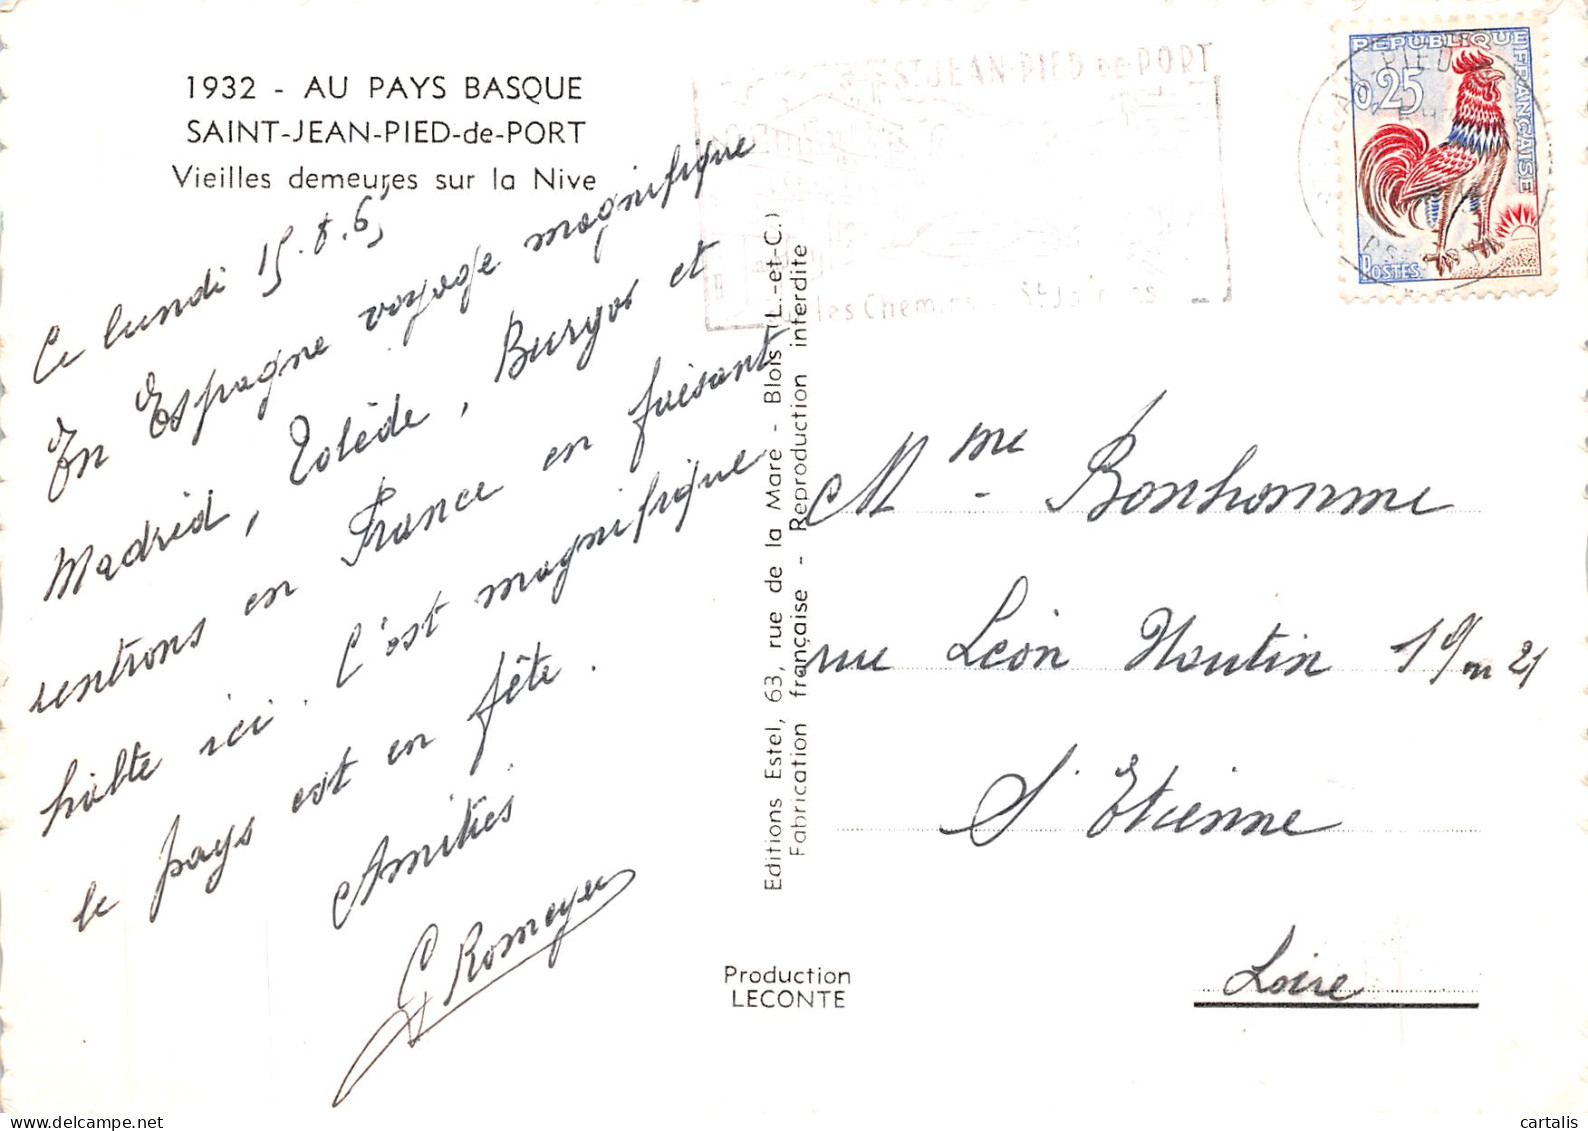 1932 - AU PAYS BASQUE
SAINT-JEAN-PIED-de-PORT
Vieilles demeures sur la Nive
Ce lundi 15.8.65
En Espagne voyage magnifique
Madrid, Tolède, Burgos et
rentrons en France en faisant
halte ici. C'est magnifique
le pays est en fête.
Amitiés
G Romeyer
Editions Estel, 63, rue de la Mare - Blois (L.-et-C.)
Fabrication française - Reproduction interdite
Production
LECONTE
ST JEAN-PIED-DE-PORT
les Chemins
REPUBLIQUE FRANÇAISE
0,25
POSTES
Mme Bonhomme
rue Léon Nautin 19 21
St Etienne
Loire
cartalis